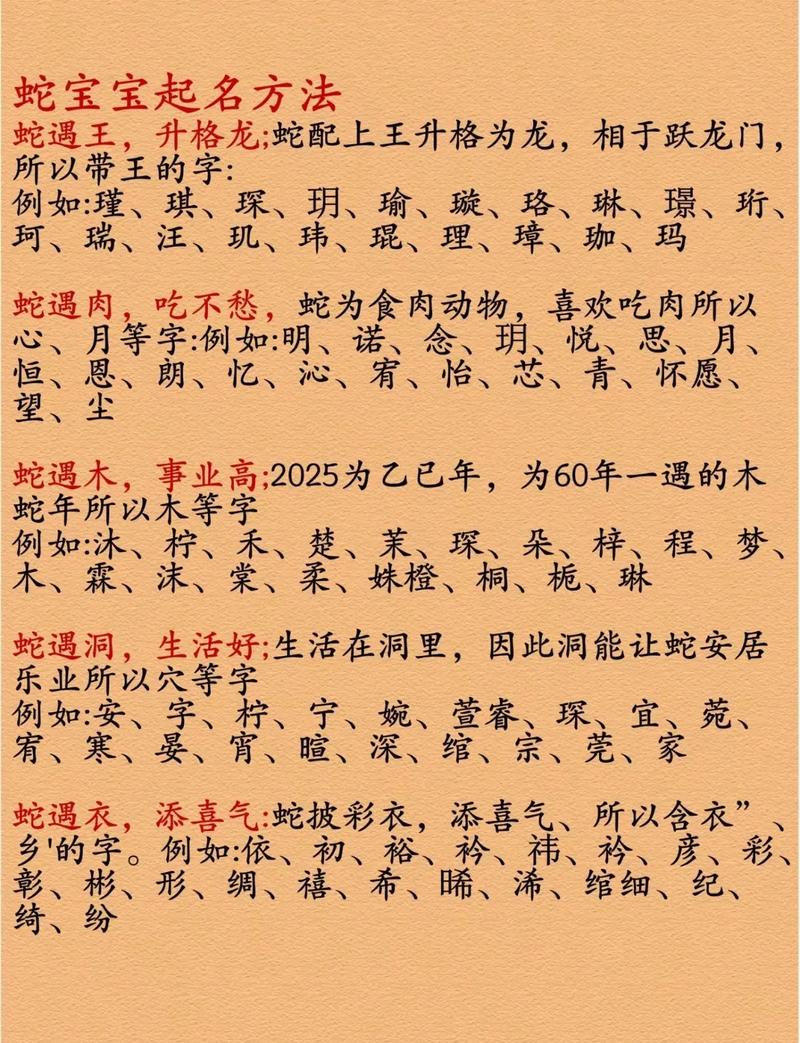 蛇宝宝起名方法
蛇遇王，升格龙;蛇配上王升格为龙，相于跃龙门，
所以带王的字:
例如:瑾、琪、琛、玥、瑜、璇、珞、琳、璟、珩、
珂、瑞、汪、玑、玮、琨、理、璋、珈、玛
蛇遇肉，吃不愁，蛇为食肉动物，喜欢吃肉所以
心、月等字:例如:明、诺、念、玥、悦、思、月、
恒、恩、朗、忆、沁、宥、怡、芯、青、怀愿、
望、尘
蛇遇木，事业高;2025为乙已年，为60年一遇的木
蛇年所以木等字
例如:沐、柠、禾、楚、茉、琛、朵、梓、程、梦、
木、霖、沫、棠、柔、姝橙、桐、栀、琳
蛇遇洞，生活好;生活在洞里，因此洞能让蛇安居
乐业所以穴等字
例如:安、字、柠、宁、婉、萱睿、琛、宜、菀、
宥、寒、晏、宵、暄、深、绾、宗、莞、家
蛇遇衣，添喜气:蛇披彩衣，添喜气、所以含衣”、
乡'的字。例如:依、初、裕、衿、祎、衿、彦、彩、
彰、彬、形、绸、禧、希、晞、浠、绾细、纪、
绮、纷